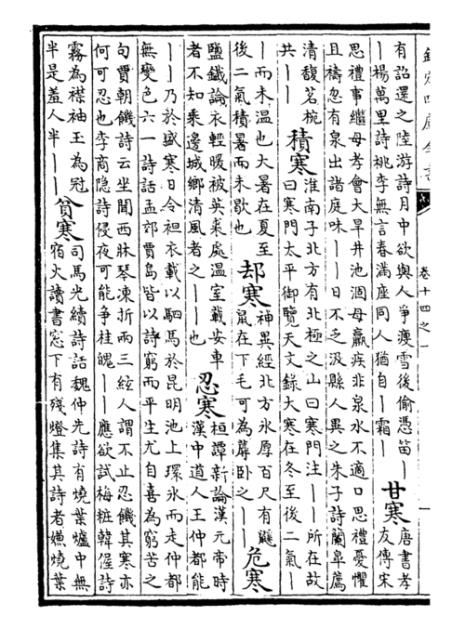 欽定四庫全書
卷十四之一
有詔還之陸游詩月中欲與人爭瘦雪後偷憑笛
—楊萬里詩桃李無言春滿座同人猶自—霜—
甘寒
唐書孝
友傳宋
思禮事繼母孝會大旱井池涸母羸疾非泉水不適口思禮憂懼
且禱忽有泉出諸庭味——日不乏汲縣人異之朱子詩蘭皐薦
清馥茗椀
共——
積寒
淮南子北方有北極之山曰寒門注——所在故
曰寒門太平御覽天文錄大寒在冬至後二氣—
—而未溫也大暑在夏至
後二氣積暑而未歇也
却寒
神異經北方氷厚百尺有鼷
鼠在下毛可為蓐卧之——
危寒
鹽鐵論衣輕暖被英裘處溫室載安車
者不知乘邊城鄉清風者之——也
忍寒
桓譚新論漢元帝時
漢中道人王仲都能
——乃於盛寒日令袒衣載以駟馬於昆明池上環氷而走仲都
無變色六一詩話孟郊賈島皆以詩窮而平生尤自喜為窮苦之
句賈朝饑詩云坐聞西牀琴凍折兩三絃人謂不止忍饑其寒亦
何可忍也李商隱詩侵夜可能爭桂魄——應欲試梅粧韓偓詩
霧為襟袖玉為冠
半是羞人半——
貧寒
司馬光續詩話魏仲先詩有燒葉爐中無
宿火讀書窓下有殘燈集其詩者嫌燒葉